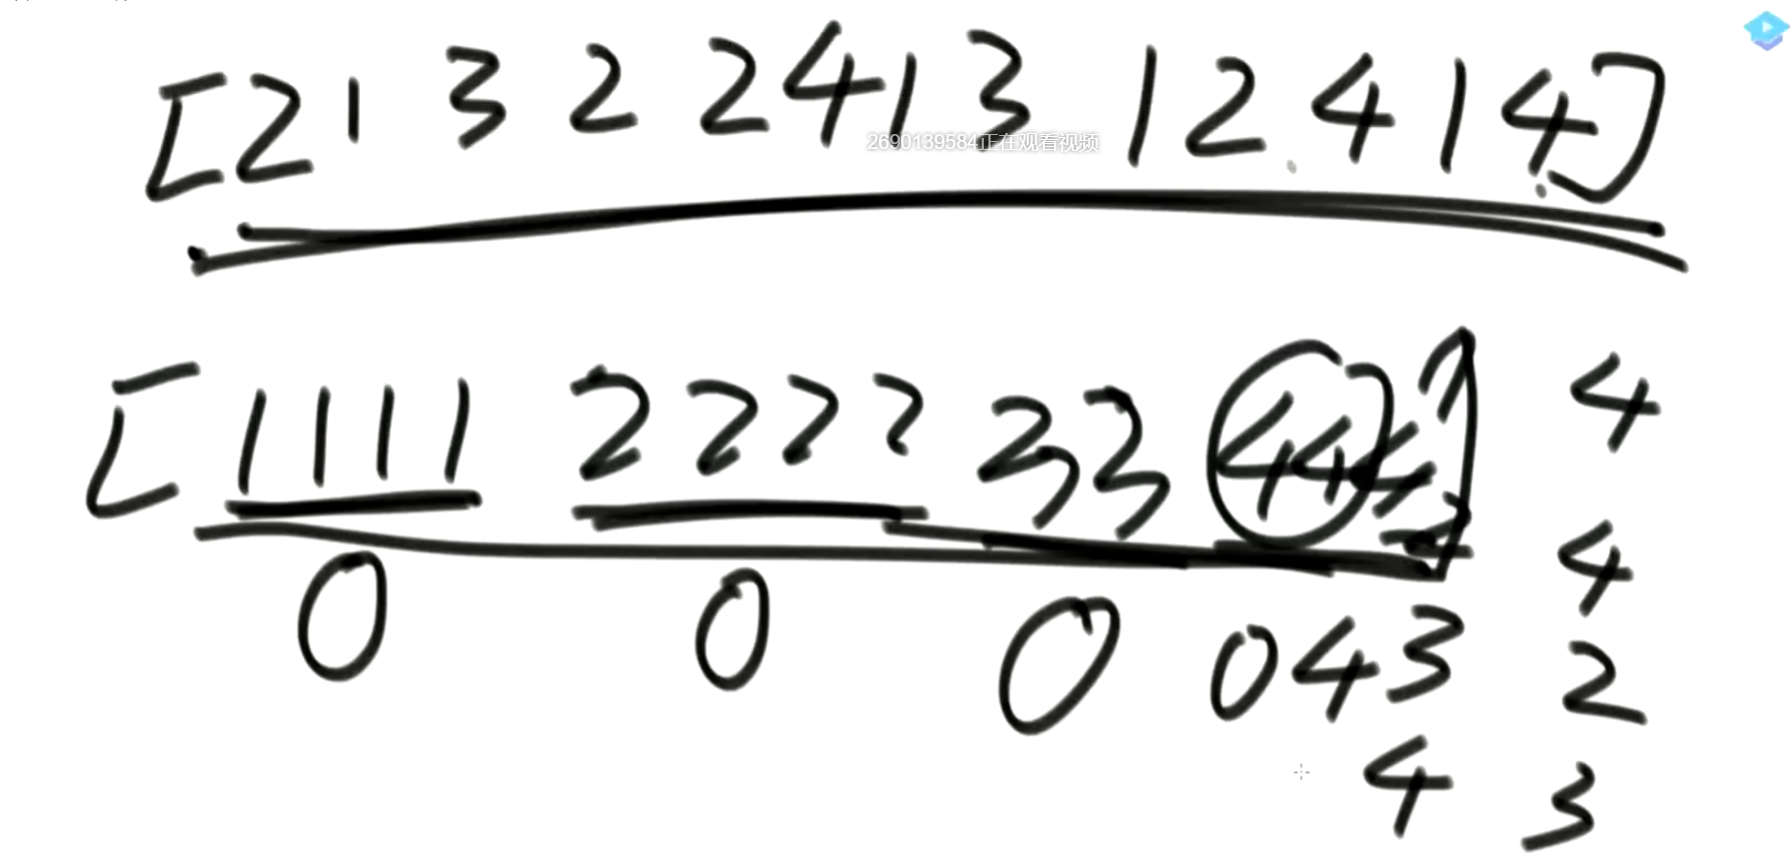 [2 1 3 2 2 4 1 3 1 2 4 1 4]
2690139584正在观看视频
[1111 2222 33 44 4
0 0 0 0 4 3 2
4 3